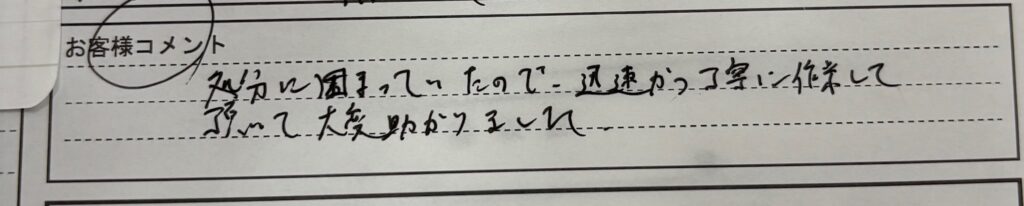 お客様コメント
処分に困まっていたので、迅速かつ丁寧に作業して
頂いて大変助かりました